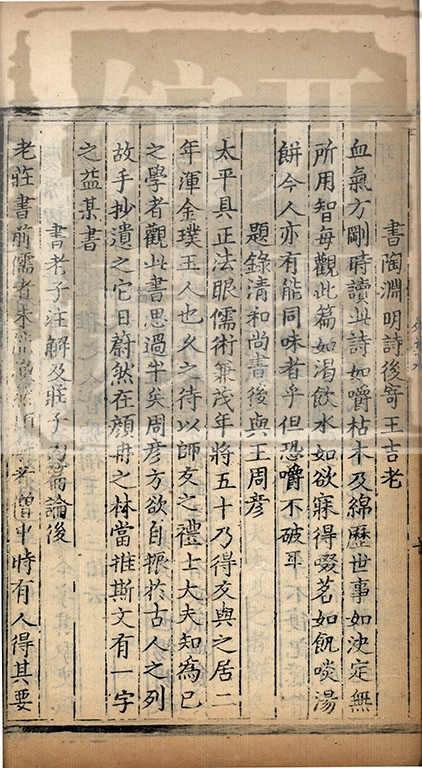 書陶淵明詩後寄王吉老
血氣方剛時讀此詩如嚼枯木及綿歷世事如決定無
所用智每觀此篇如渴飲水如欲寐得啜茗如飢啖湯
餅今人亦有能同味者乎但恐嚼不破耳
題錄清和尚書後與王周彦
太平具正法眼儒術兼茂年將五十乃得友與之居二
年渾金璞玉人也久之待以師友之禮士大夫知為己
之學者觀此書思過半矣周彦方欲自振於古人之列
故手抄漬之它日蔚然在顔冉之林當推斯文有一字
之益某書
書老子注解及莊子內篇論後
老莊書前儒者未 者僧中時有人得其要